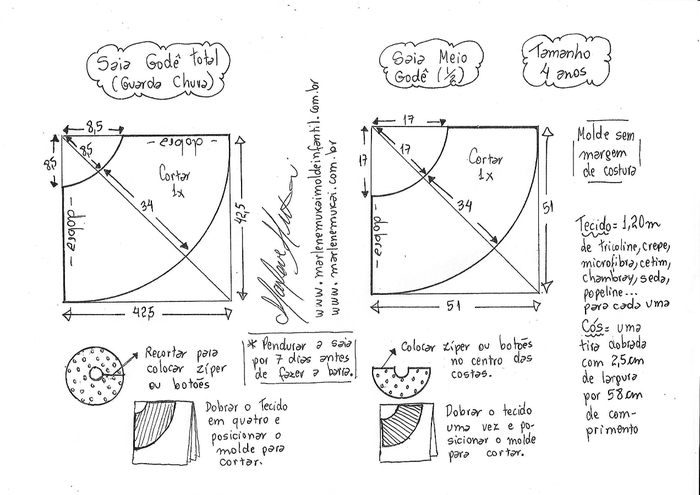 Saia Godê total
(Guarda Chuva)
Saia Meio
Godê (½)
Tamanho
4 anos
8,5
8,5
8,5
- dobra -
- dobra -
Cortar
1x
34
42,5
42,5
www.marlenemukaimoldeinfantil.com.br
www.marlenemukai.com.br
17
17
17
- dobra -
Cortar
1x
34
51
51
Molde sem
margem
de costura
Tecido = 1,20m
de tricoline, crepe,
microfibra, cetim,
chambray, seda,
popeline...
para cada uma
Cós = uma
tira dobrada
com 2,5cm
de largura
por 58cm
de com-
primento
Recortar para
colocar zíper
ou botões
* Pendurar a saia
por 7 dias antes
de fazer a barra.
Colocar zíper ou botões
no centro das
costas.
Dobrar o Tecido
em quatro e
posicionar o
molde para
cortar.
Dobrar o tecido
uma vez e po-
sicionar o molde
para cortar.